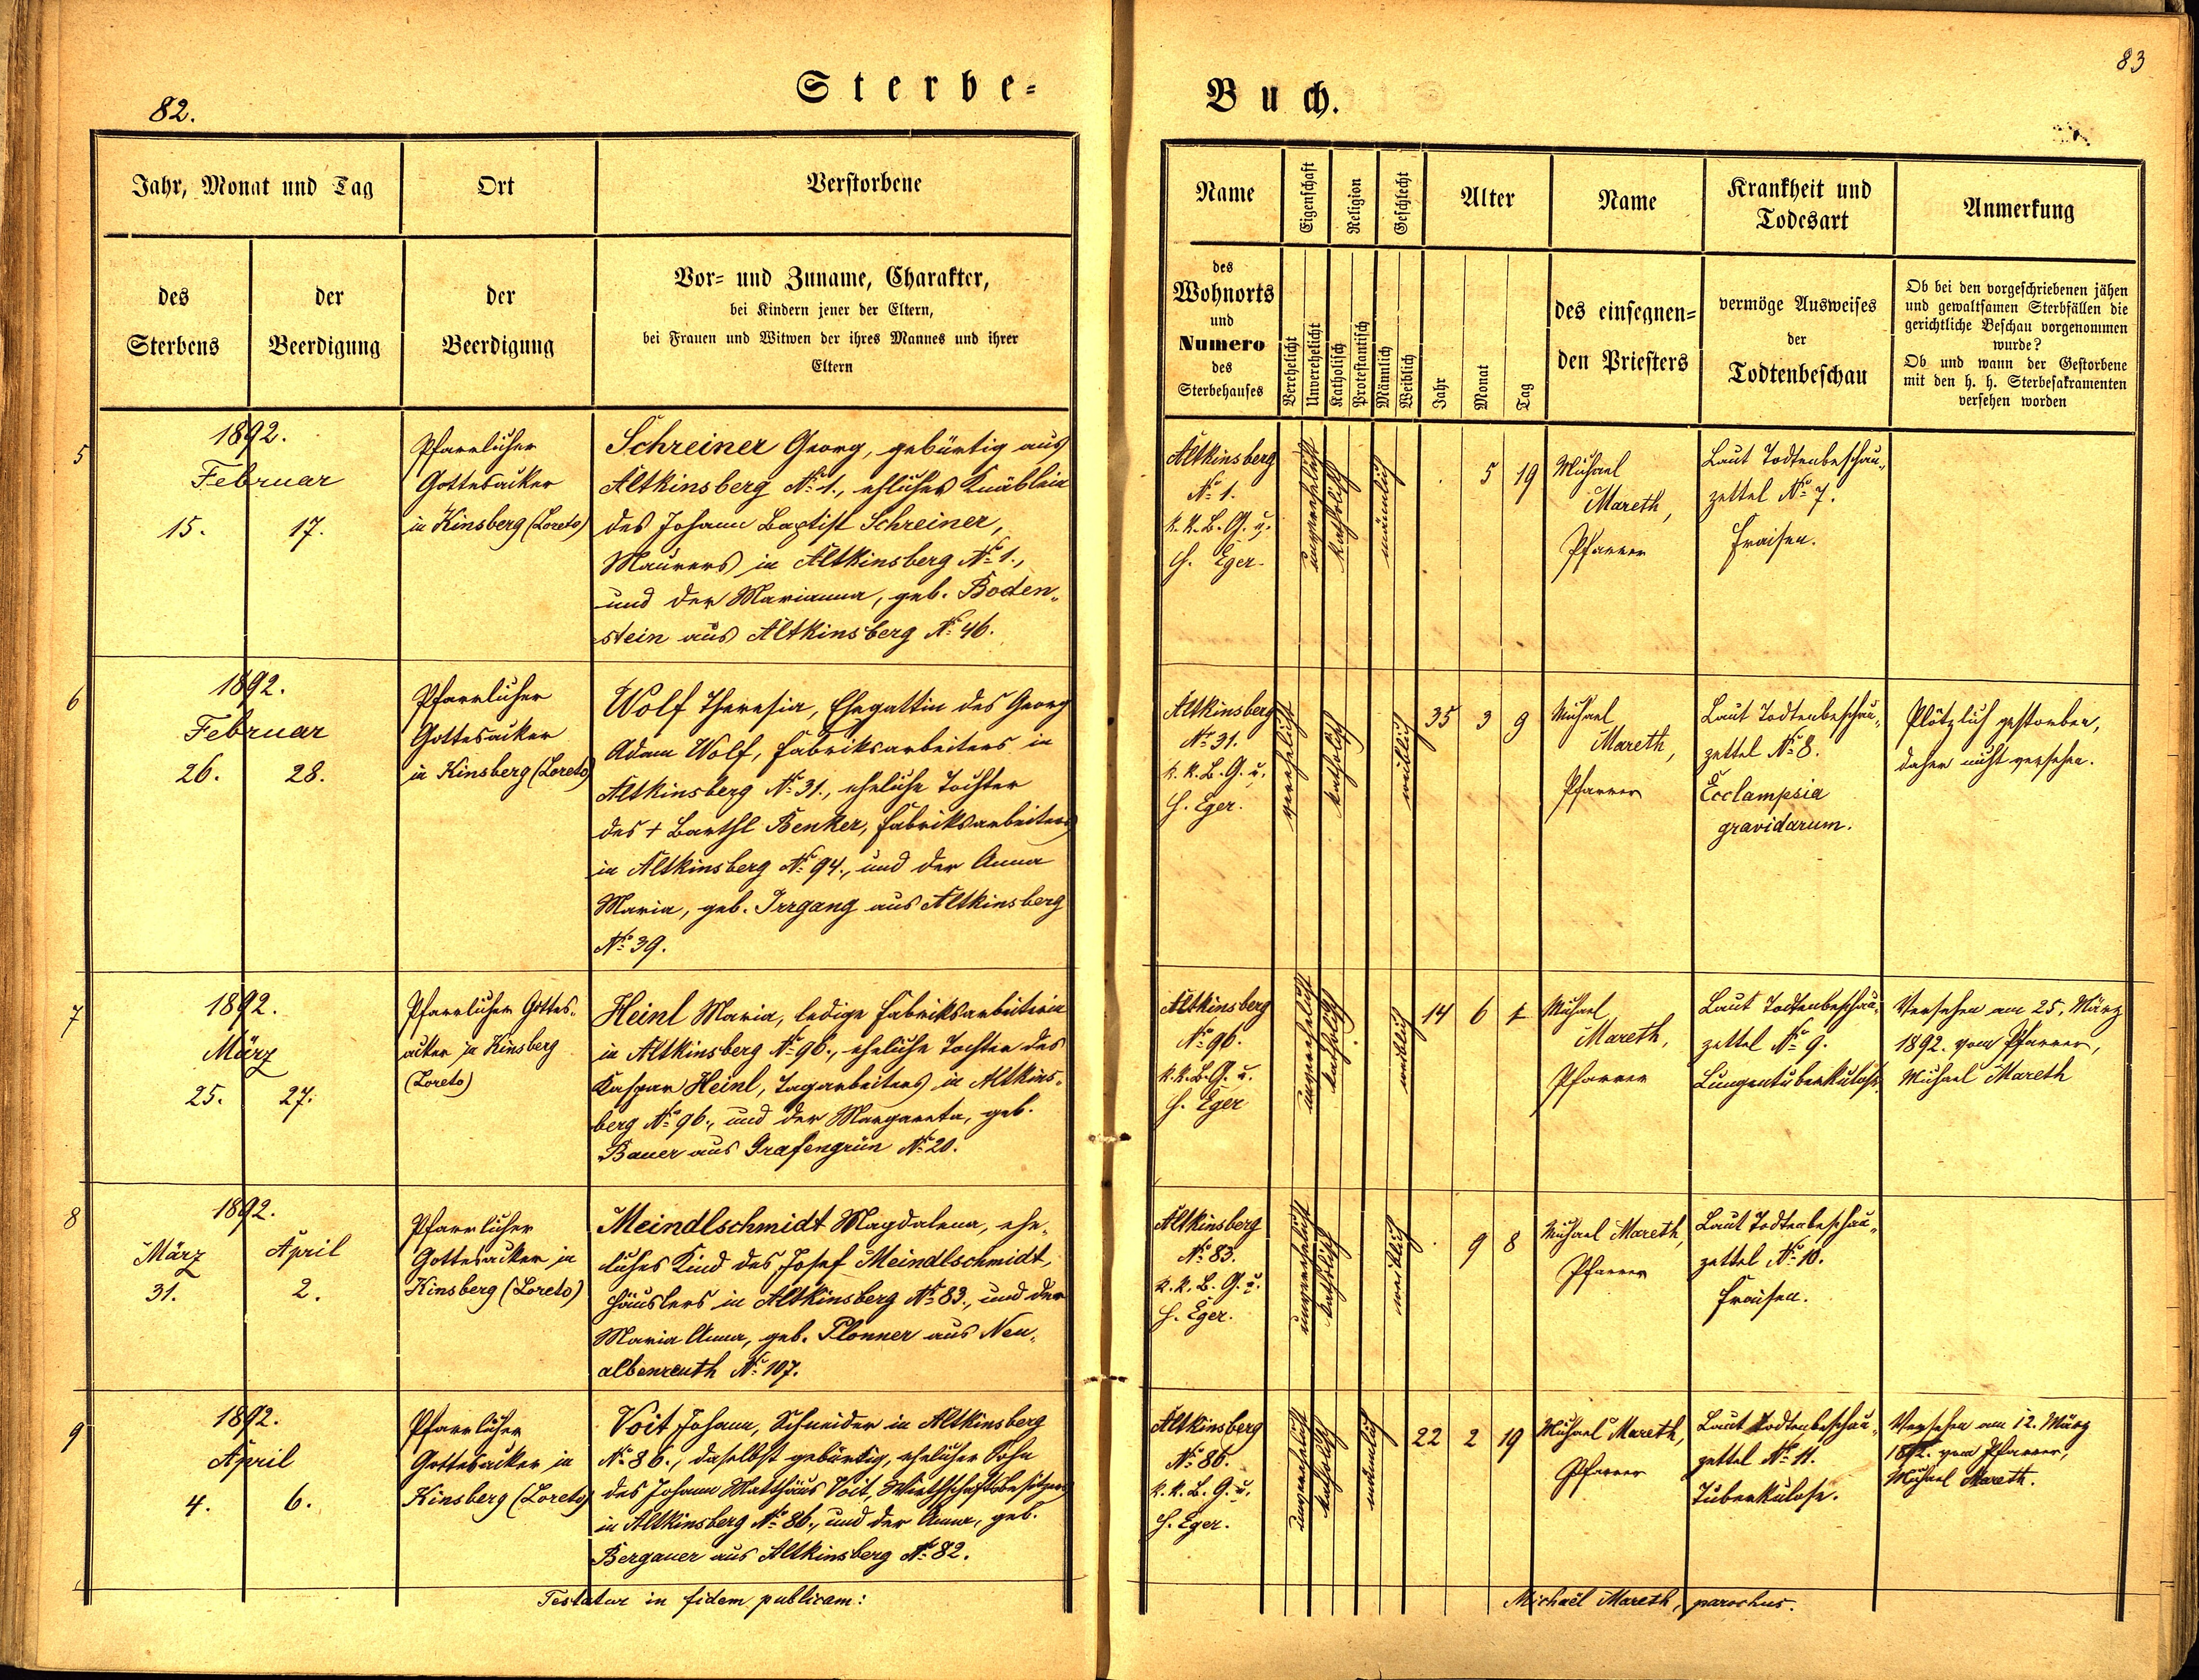 82.
Sterbe-
Jahr, Monat und Tag
Ort
Verstorbene
des
Sterbens
der
Beerdigung
der
Beerdigung
Vor- und Zuname, Charakter,
bei Kindern jener der Eltern,
bei Frauen und Witwen der ihres Mannes und ihrer
Eltern
5
1892.
Februar
15. 17.
Pfarrlicher
Gottesacker
in Kinsberg (Loreto)
Schreiner Georg, gebürtig aus
Altkinsberg No 1., ehliches Knäblein
des Johann Baptist Schreiner,
Maurers in Altkinsberg No 1.,
und der Marianna, geb. Boden-
stein aus Altkinsberg No 46.
6
1892.
Februar
26. 28.
Pfarrlicher
Gottesacker
in Kinsberg (Loreto)
Wolf Theresia, Ehegattin des Georg
Adam Wolf, Fabriksarbeiters in
Altkinsberg No 31., eheliche Tochter
des + Barthl Benker, Fabriksarbeiters
in Altkinsberg No 94., und der Anna
Maria, geb. Irrgang aus Altkinsberg
No 39.
7
1892.
März
25. 27.
Pfarrlicher Gottes-
acker in Kinsberg
(Loreto)
Heinl Maria, ledige Fabriksarbeiterin
in Altkinsberg No 96., eheliche Tochter des
Kaspar Heinl, Tagarbeiters in Altkins-
berg No 96., und der Margareta, geb.
Bauer aus Grafengrün No 20.
8
1892.
März April
31. 2.
Pfarrlicher
Gottesacker in
Kinsberg (Loreto)
Meindlschmidt Magdalena, ehe-
liches Kind des Josef Meindlschmidt,
Häuslers in Altkinsberg No 83., und der
Maria Anna, geb. Plonner aus Neu-
albenreuth No 107.
9
1892.
April
4. 6.
Pfarrlicher
Gottesacker in
Kinsberg (Loreto)
Voit Johann, Schneider in Altkinsberg
No 86., daselbst gebürtig, ehelicher Sohn
des Johann Matthäus Voit, Wirthschaftsbesitzers
in Altkinsberg No 86., und der Anna, geb.
Bergauer aus Altkinsberg No 82.
Testatur in fidem publicam:
83
Buch.
Name
Eigenschaft
Religion
Geschlecht
Alter
Name
Krankheit und
Todesart
Anmerkung
des
Wohnorts
und
Numero
des
Sterbehauses
Verehelicht
Unverehelicht
Katholisch
Protestantisch
Männlich
Weiblich
Jahr
Monat
Tag
des einsegnen-
den Priesters
vermöge Ausweises
der
Todtenbeschau
Ob bei den vorgeschriebenen jähen
und gewaltsamen Sterbfällen die
gerichtliche Beschau vorgenommen
wurde?
Ob und wann der Gestorbene
mit den h. h. Sterbesakramenten
versehen worden
Altkinsberg
No 1.
k. k. B. G. u.
H. Eger.
unverehelicht
katholisch
männlich
. 5 19
Michael
Mareth,
Pfarrer
Laut Todtenbeschau-
zettel No 7.
Fraisen.
Altkinsberg
No 31.
k. k. B. G. u.
H. Eger.
verehelicht
katholisch
weiblich
35 3 9
Michael
Mareth,
Pfarrer
Laut Todtenbeschau-
zettel No 8.
Ecclampsia
gravidarum.
Plötzlich gestorben,
daher nicht versehen.
Altkinsberg
No 96.
k. k. B. G. u.
H. Eger
unverehelicht
katholisch
weiblich
14 6
Michael
Mareth,
Pfarrer
Laut Todtenbeschau-
zettel No 9.
Lungentuberkulose.
Versehen am 25. März
1892. vom Pfarrer,
Michael Mareth
Altkinsberg
No 83.
k. k. B. G. u.
H. Eger.
unverehelicht
katholisch
weiblich
. 9 8
Michael Mareth,
Pfarrer
Laut Todtenbeschau-
zettel No 10.
Fraisen.
Altkinsberg
No 86.
k. k. B. G. u.
H. Eger.
unverehelicht
katholisch
männlich
22 2 19
Michael Mareth,
Pfarrer
Laut Todtenbeschau-
zettel No 11.
Tuberkulose.
Versehen am 12. März
1892. vom Pfarrer,
Michael Mareth.
Michaël Mareth, parochus.